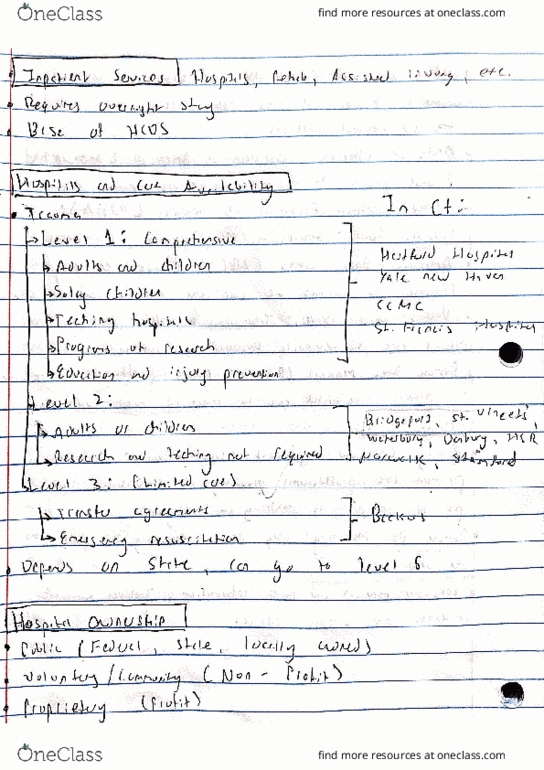 OneClass
find more resources at oneclass.com
Inpatient Services Hospitals, Rehab, Assisted living, etc.
Requires overnight stay
Hospitals and Care Availability
In Ct:
Trauma
Level 1: Comprehensive
Adults and children
Hartford Hospital
Yale new Haven
Soley children
CCMC
Teching hospitals
St. Francis Hospital
Programs of research
Education and injury prevention
Level 2:
Adults or children
Bridgeport, St. Vincents,
Waterbury, Danbury,
Research and teching not required
Norwalk, Stamford
Level 3: (Limited care)
Transfer agreements
Backus
Emergency resuscitation
Depends on State, can go to level 5
Hospital Ownership
Public (Federal, State, locally owned)
Voluntary/Community (Non-Profit)
Proprietary (Profit)
OneClass
find more resources at oneclass.com